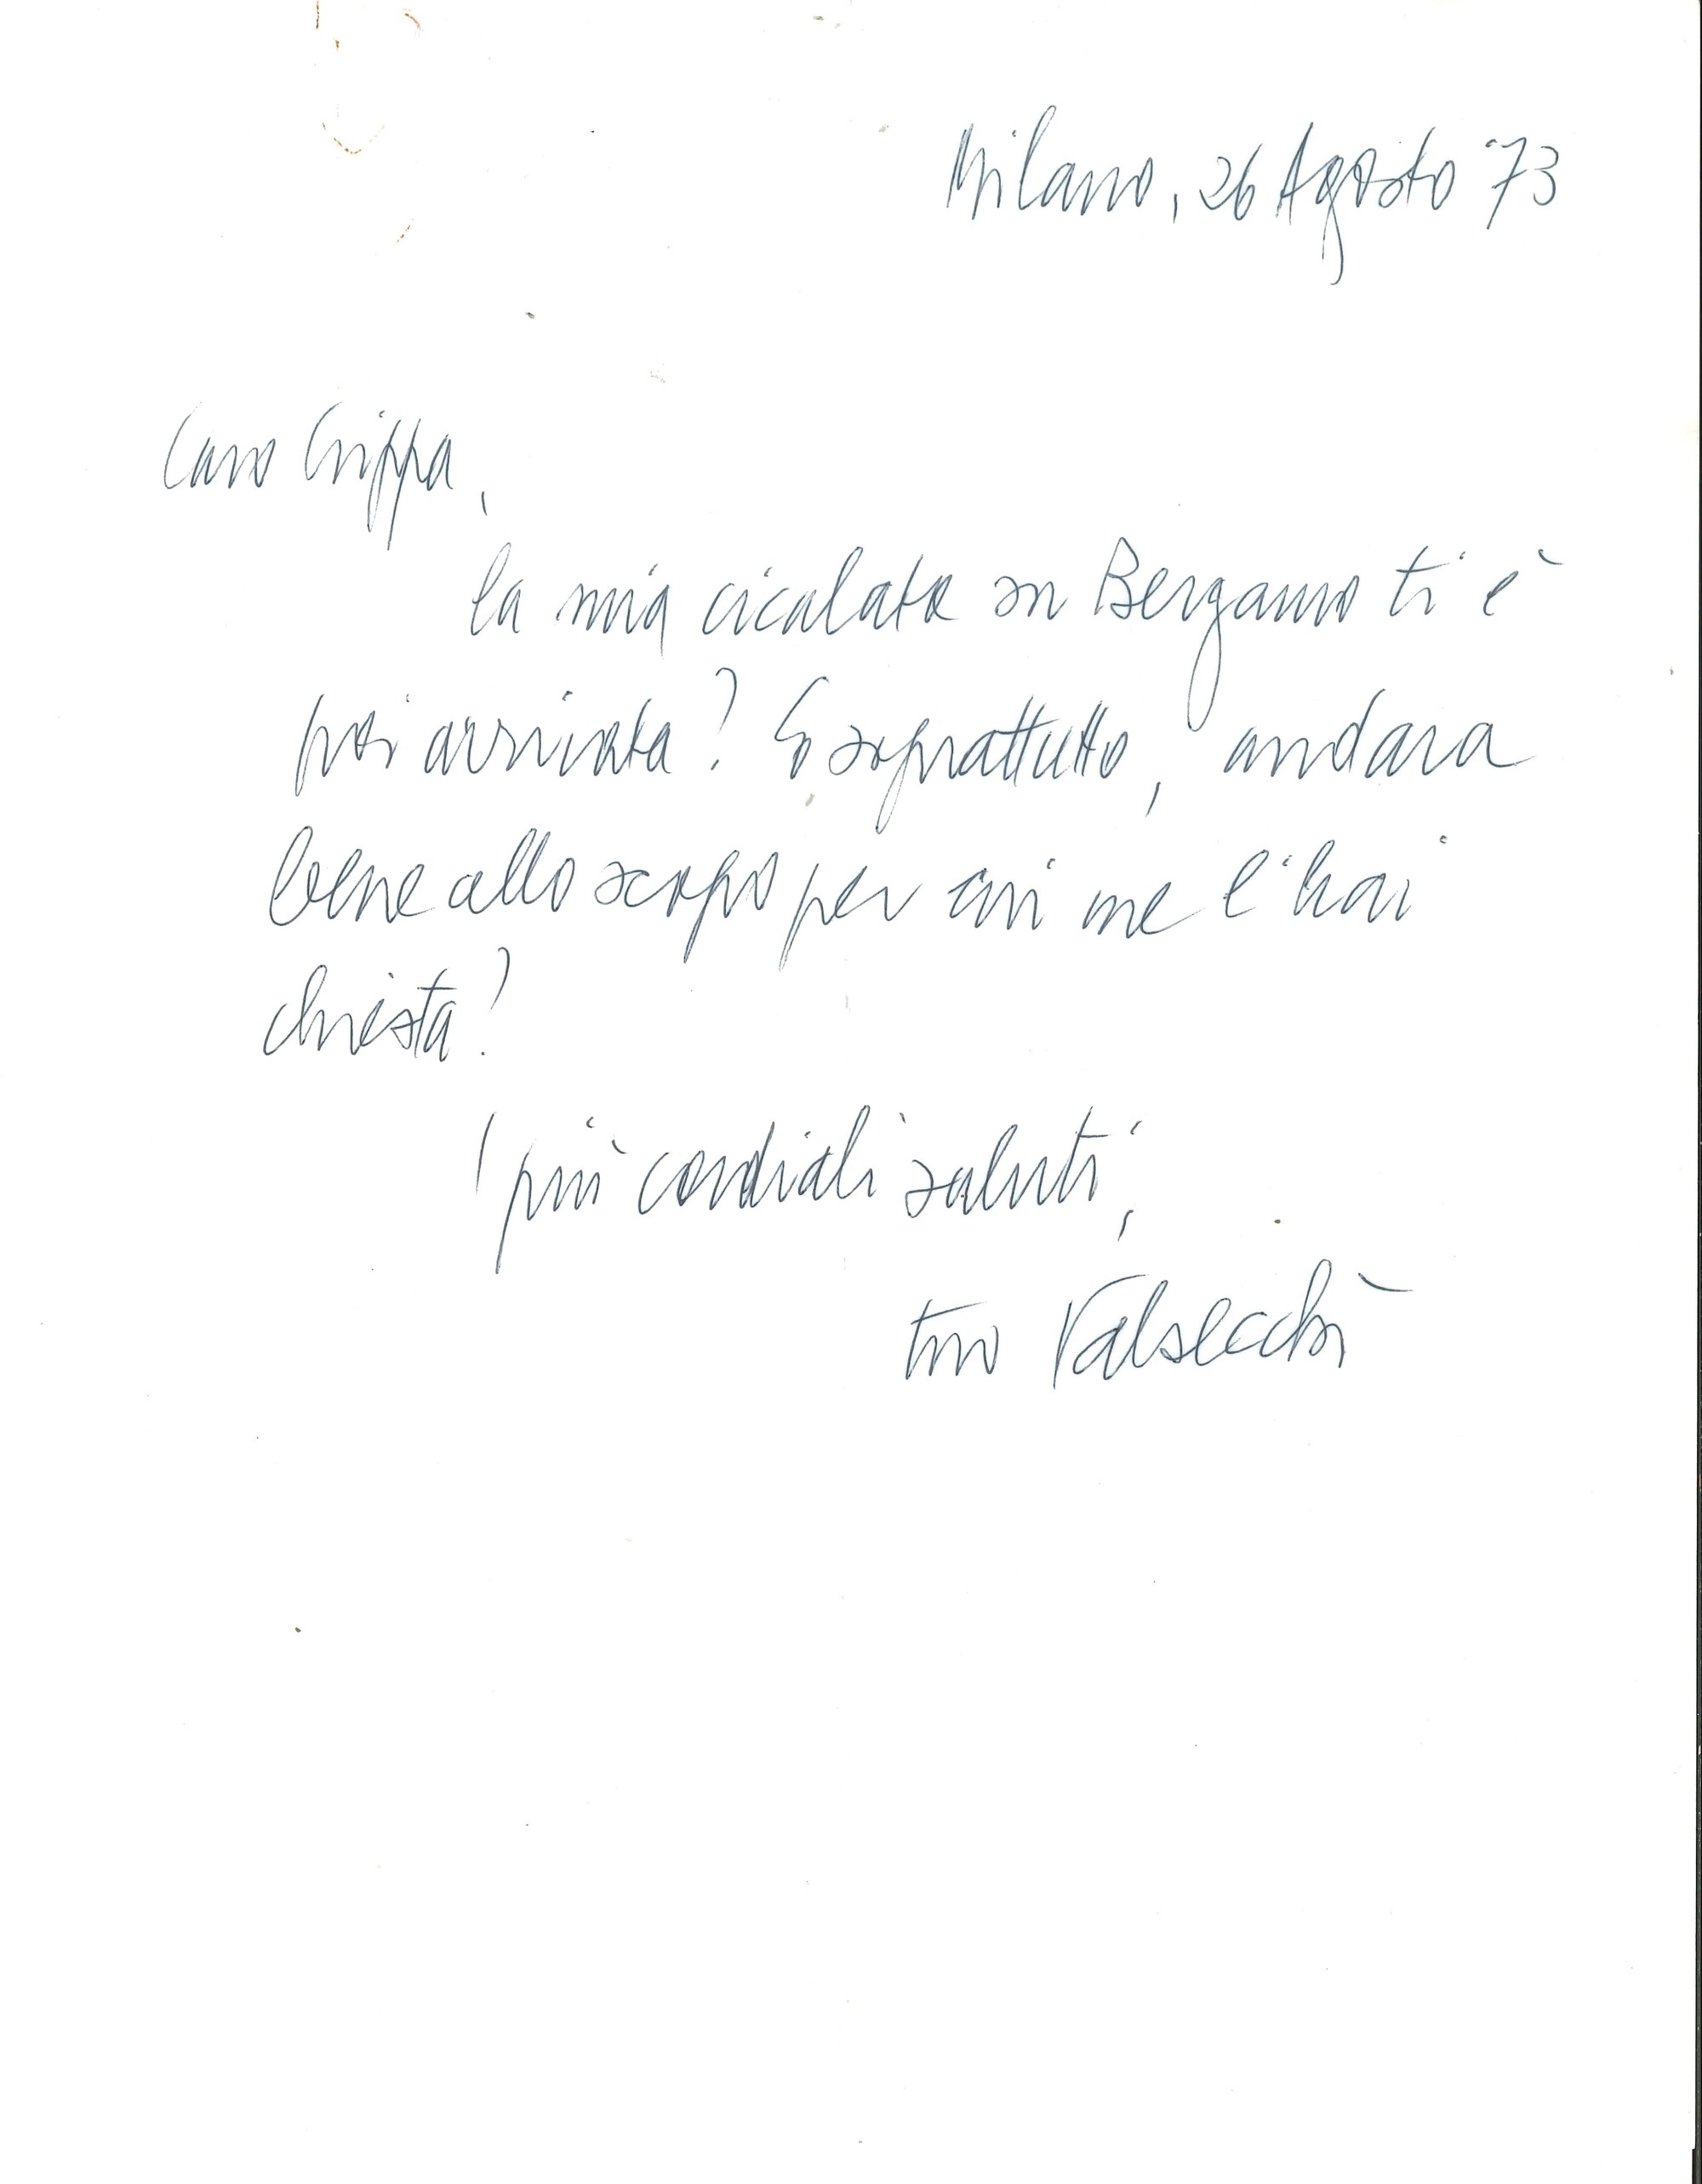 Milano, 26 Agosto '73
Caro Crippa,
la mia cicalata su Bergamo ti è
poi arrivata? E soprattutto, andava
bene allo scopo per cui me l'hai
chiesta?
I più cordiali saluti,
tuo Valsecchi